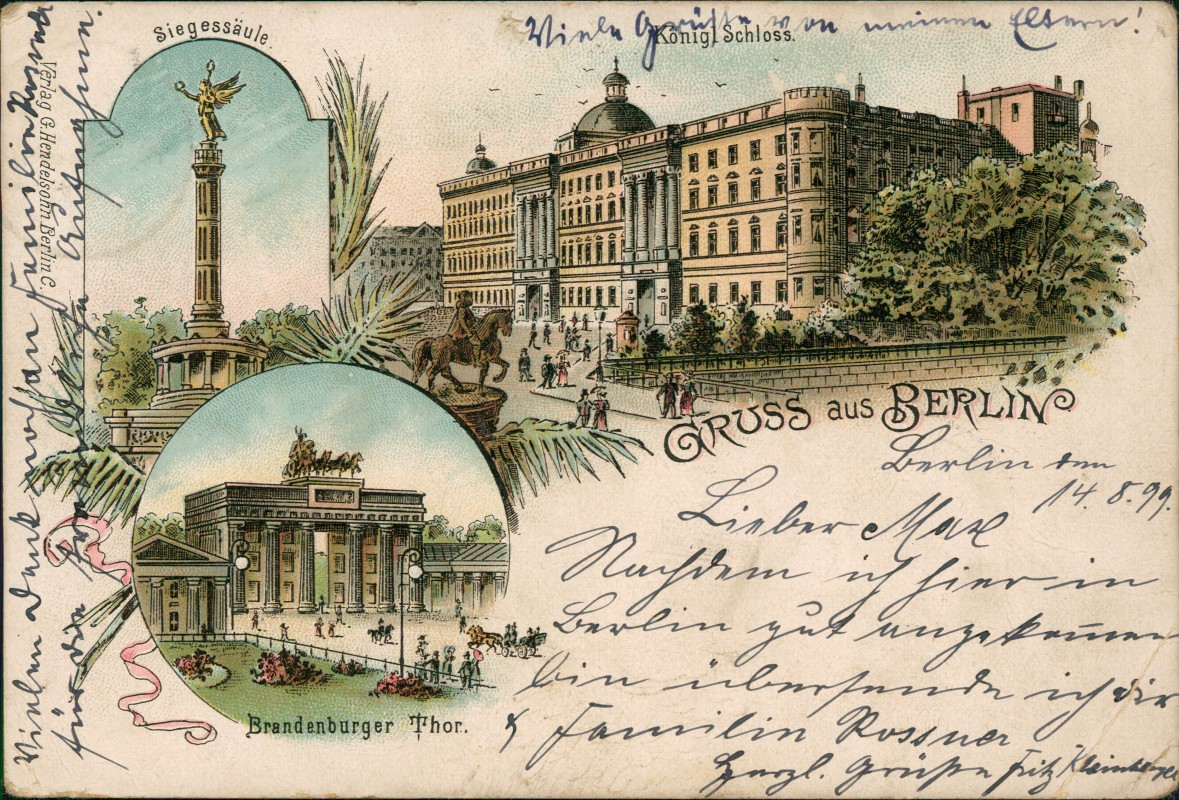 Viele Grüße von meinen Eltern!
Siegessäule.
Königl. Schloss.
Verlag G. Hendelsohn, Berlin C.
GRUSS aus BERLIN
Berlin den
14.8.99.
Lieber Max
Nachdem ich hier in
Berlin gut angekommen
bin übersende ich dir
& Familie Rossner
Herzl. Grüße Fritz
Brandenburger Thor.
Vielen Dank noch an Familie Rossner
für die freundliche Aufnahme.